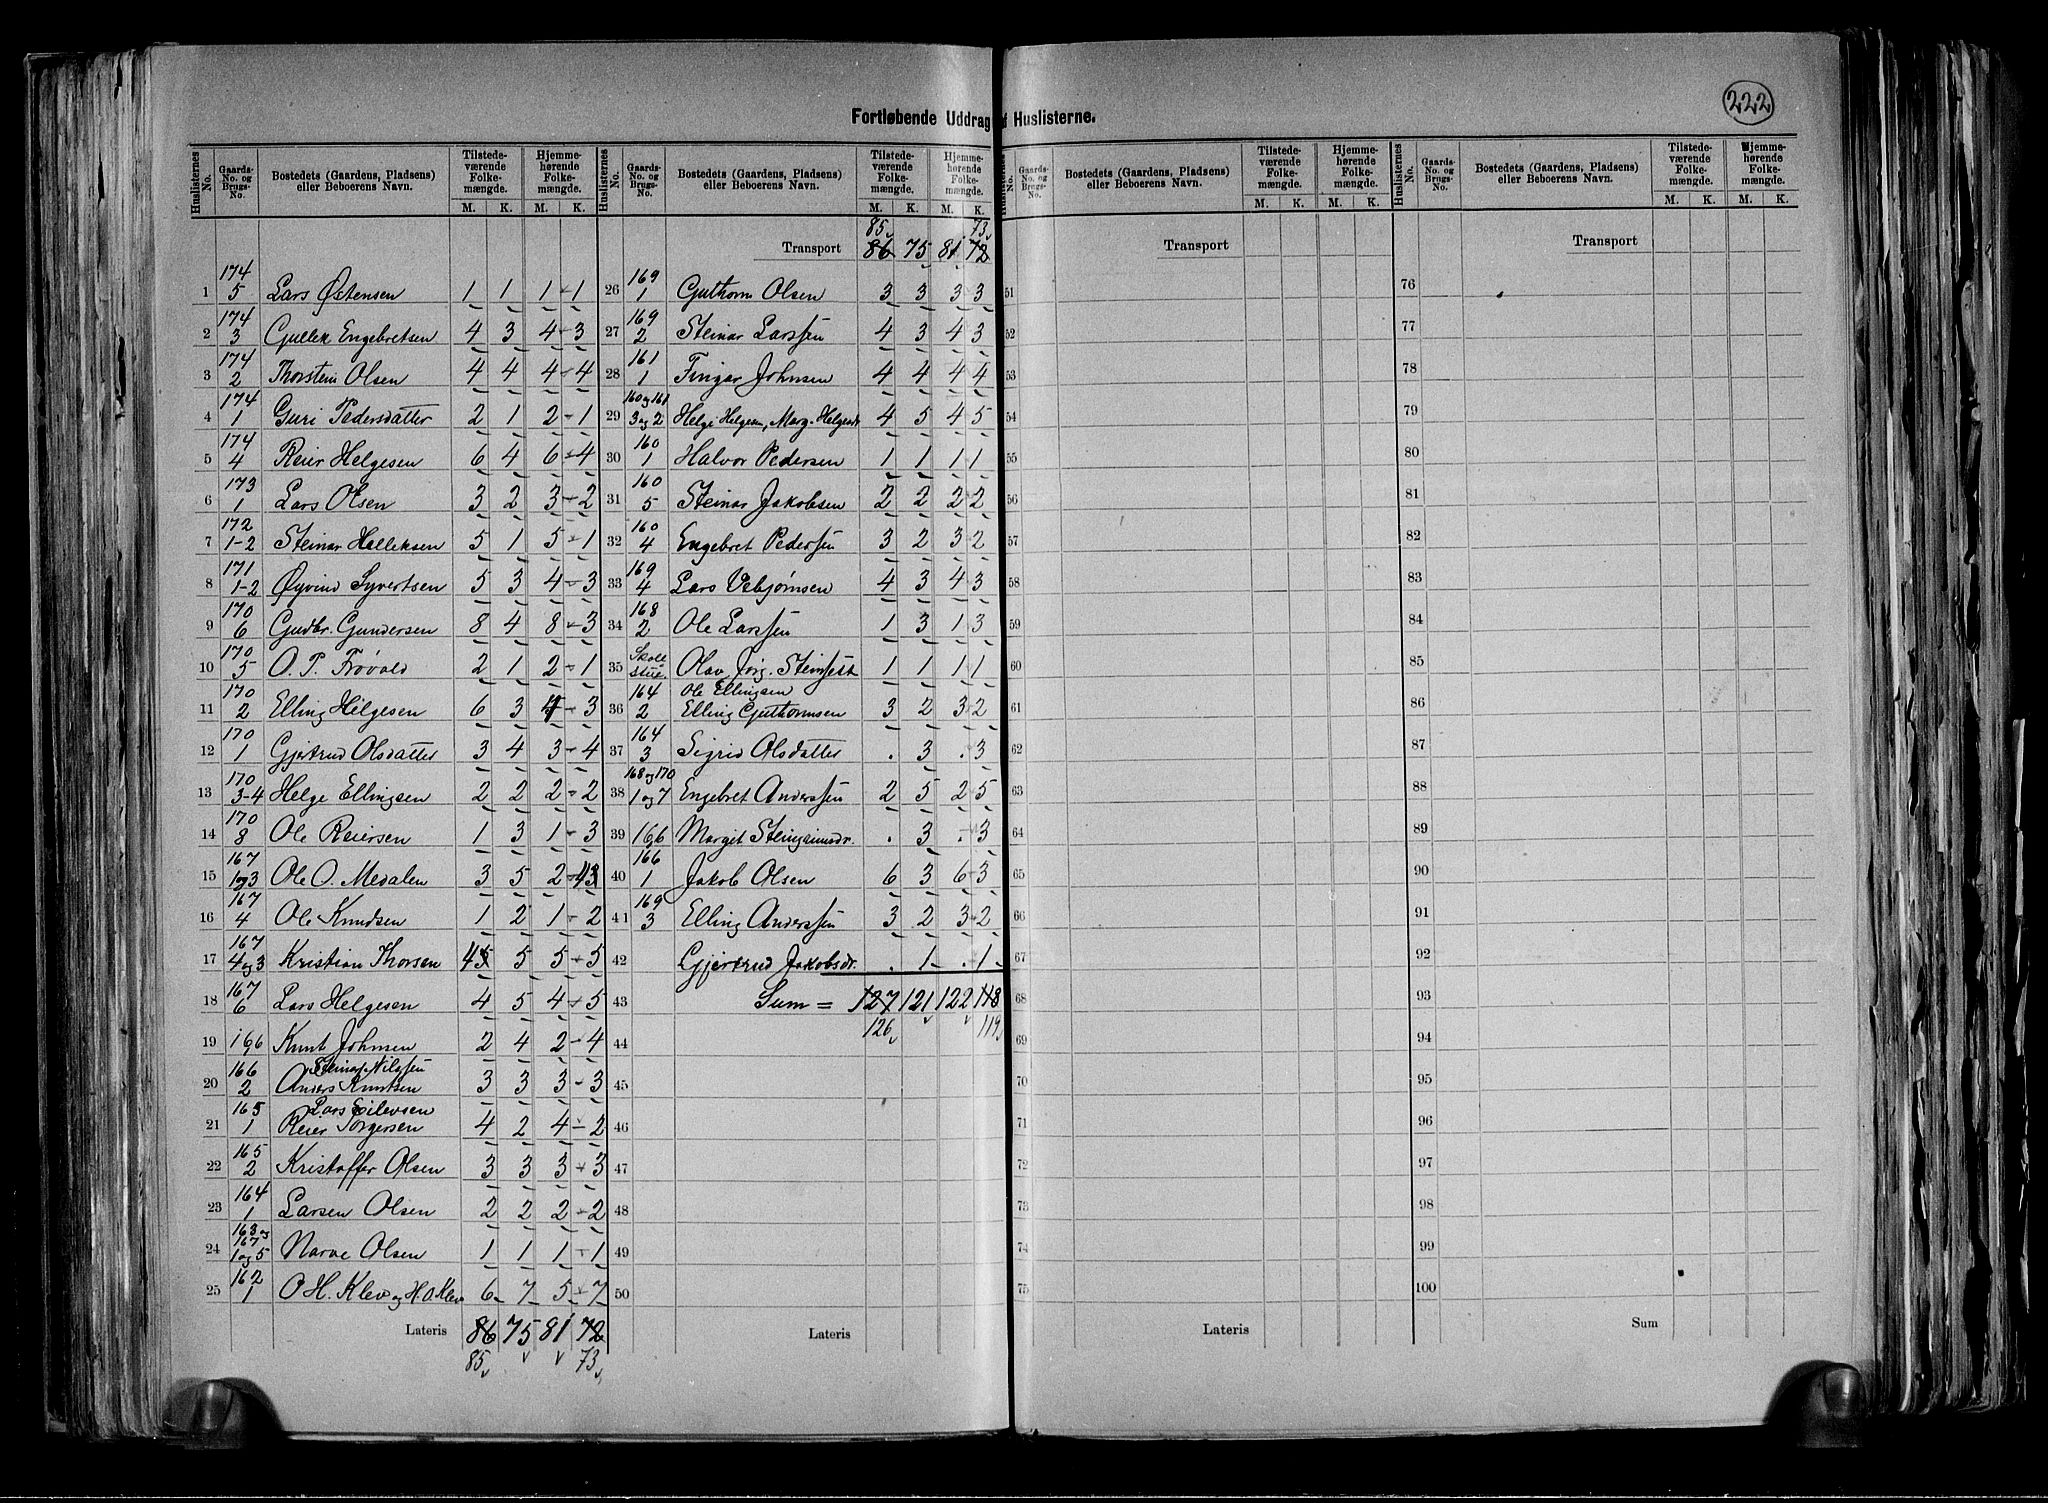 222
Fortløbende Uddrag af Huslisterne.
Huslisternes No. | Gaards-No. og Brugs-No. | Bostedets (Gaardens, Pladsens) eller Beboerens Navn. | Tilstedeværende Folkemængde. M. K. | Hjemmehørende Folkemængde. M. K.
1 | 174 5 | Lars Østensen | 1 | 1 | 1 | 1
2 | 174 3 | Gullek Engebretsen | 4 | 3 | 4 | 3
3 | 174 2 | Thorstein Olsen | 4 | 4 | 4 | 4
4 | 174 1 | Guri Pedersdatter | 2 | 1 | 2 | 1
5 | 174 4 | Reier Helgesen | 6 | 4 | 6 | 4
6 | 173 1 | Lars Olsen | 3 | 2 | 3 | 2
7 | 172 1-2 | Steinar Halleksen | 5 | 1 | 5 | 1
8 | 171 1-2 | Øyvind Syvertsen | 5 | 3 | 4 | 3
9 | 170 6 | Gudbr. Gundersen | 8 | 4 | 8 | 3
10 | 170 5 | O. P. Frøvold | 2 | 1 | 2 | 1
11 | 170 2 | Elling Helgesen | 6 | 3 | 4 | 3
12 | 170 1 | Gjertrud Olsdatter | 3 | 4 | 3 | 4
13 | 170 3-4 | Helge Ellingsen | 2 | 2 | 2 | 2
14 | 170 8 | Ole Reiersen | 1 | 3 | 1 | 3
15 | 167 1og3 | Ole O. Medalen | 3 | 5 | 2 | 43
16 | 167 4 | Ole Knudsen | 1 | 2 | 1 | 2
17 | 167 4og3 | Kristian Thorsen | 45 | 5 | 5 | 5
18 | 167 6 | Lars Helgesen | 4 | 5 | 4 | 5
19 | 166 | Knut Johnsen | 2 | 4 | 2 | 4
20 | 166 2 | Steinar Nilssen Anders Knutsen | 3 | 3 | 3 | 3
21 | 165 1 | Lars Eilevsen Reier Torgersen | 4 | 2 | 4 | 2
22 | 165 2 | Kristoffer Olsen | 3 | 3 | 3 | 3
23 | 164 1 | Larsen Olsen | 2 | 2 | 2 | 2
24 | 163og 167 1og5 | Narve Olsen | 1 | 1 | 1 | 1
25 | 162 1 | O H. Klev og H. O. Klev | 6 | 7 | 5 | 7
Lateris 86 75 81 72
85 73
85 73
Transport 86 75 81 72
26 | 169 1 | Guthorm Olsen | 3 | 3 | 3 | 3
27 | 169 2 | Steinar Larssen | 4 | 3 | 4 | 3
28 | 161 1 | Fingar Johnsen | 4 | 4 | 4 | 4
29 | 160og161 3og2 | Helge Helgesen, Marg. Helgesdr | 4 | 5 | 4 | 5
30 | 160 1 | Halvor Pedersen | 1 | 1 | 1 | 1
31 | 160 5 | Steinar Jakobsen | 2 | 2 | 2 | 2
32 | 160 4 | Engebret Pedersen | 3 | 2 | 3 | 2
33 | 169 4 | Lars Vebjørnsen | 4 | 3 | 4 | 3
34 | 168 2 | Ole Larssen | 1 | 3 | 1 | 3
35 | Skolestue. | Olav Jørg. Steinsest | 1 | 1 | 1 | 1
36 | 164 2 | Ole Ellingsen Elling Guthormsen | 3 | 2 | 3 | 2
37 | 164 3 | Sigrid Olsdatter | . | 3 | . | 3
38 | 168og170 1og7 | Engebret Anderssen | 2 | 5 | 2 | 5
39 | 166 | Margit Steingrimsdr. | . | 3 | . | 3
40 | 166 1 | Jakob Olsen | 6 | 3 | 6 | 3
41 | 169 3 | Elling Anderssen | 3 | 2 | 3 | 2
42 | Gjertrud Jakobsdr. | . | 1 | . | 1
43 | Sum = 127 121 122 118
126 119
44
45
46
47
48
49
50
Lateris
Huslisternes No. | Gaards-No. og Brugs-No. | Bostedets (Gaardens, Pladsens) eller Beboerens Navn. | Tilstedeværende Folkemængde. M. K. | Hjemmehørende Folkemængde. M. K.
Transport
51
52
53
54
55
56
57
58
59
60
61
62
63
64
65
66
67
68
69
70
71
72
73
74
75
Lateris
Transport
76
77
78
79
80
81
82
83
84
85
86
87
88
89
90
91
92
93
94
95
96
97
98
99
100
Sum